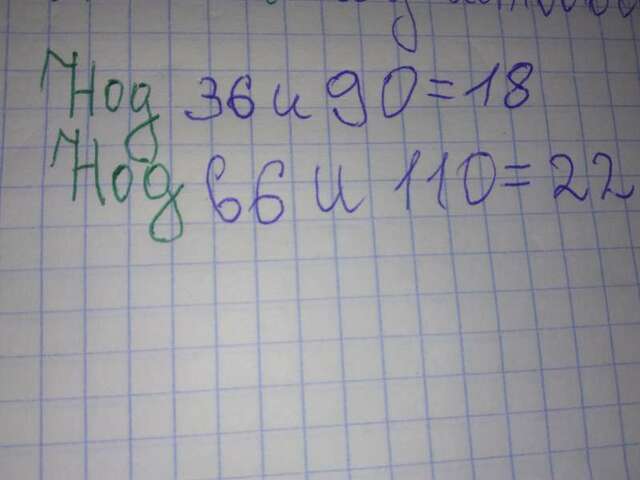 Нод 36 и 90=18
Нод 66 и 110=22